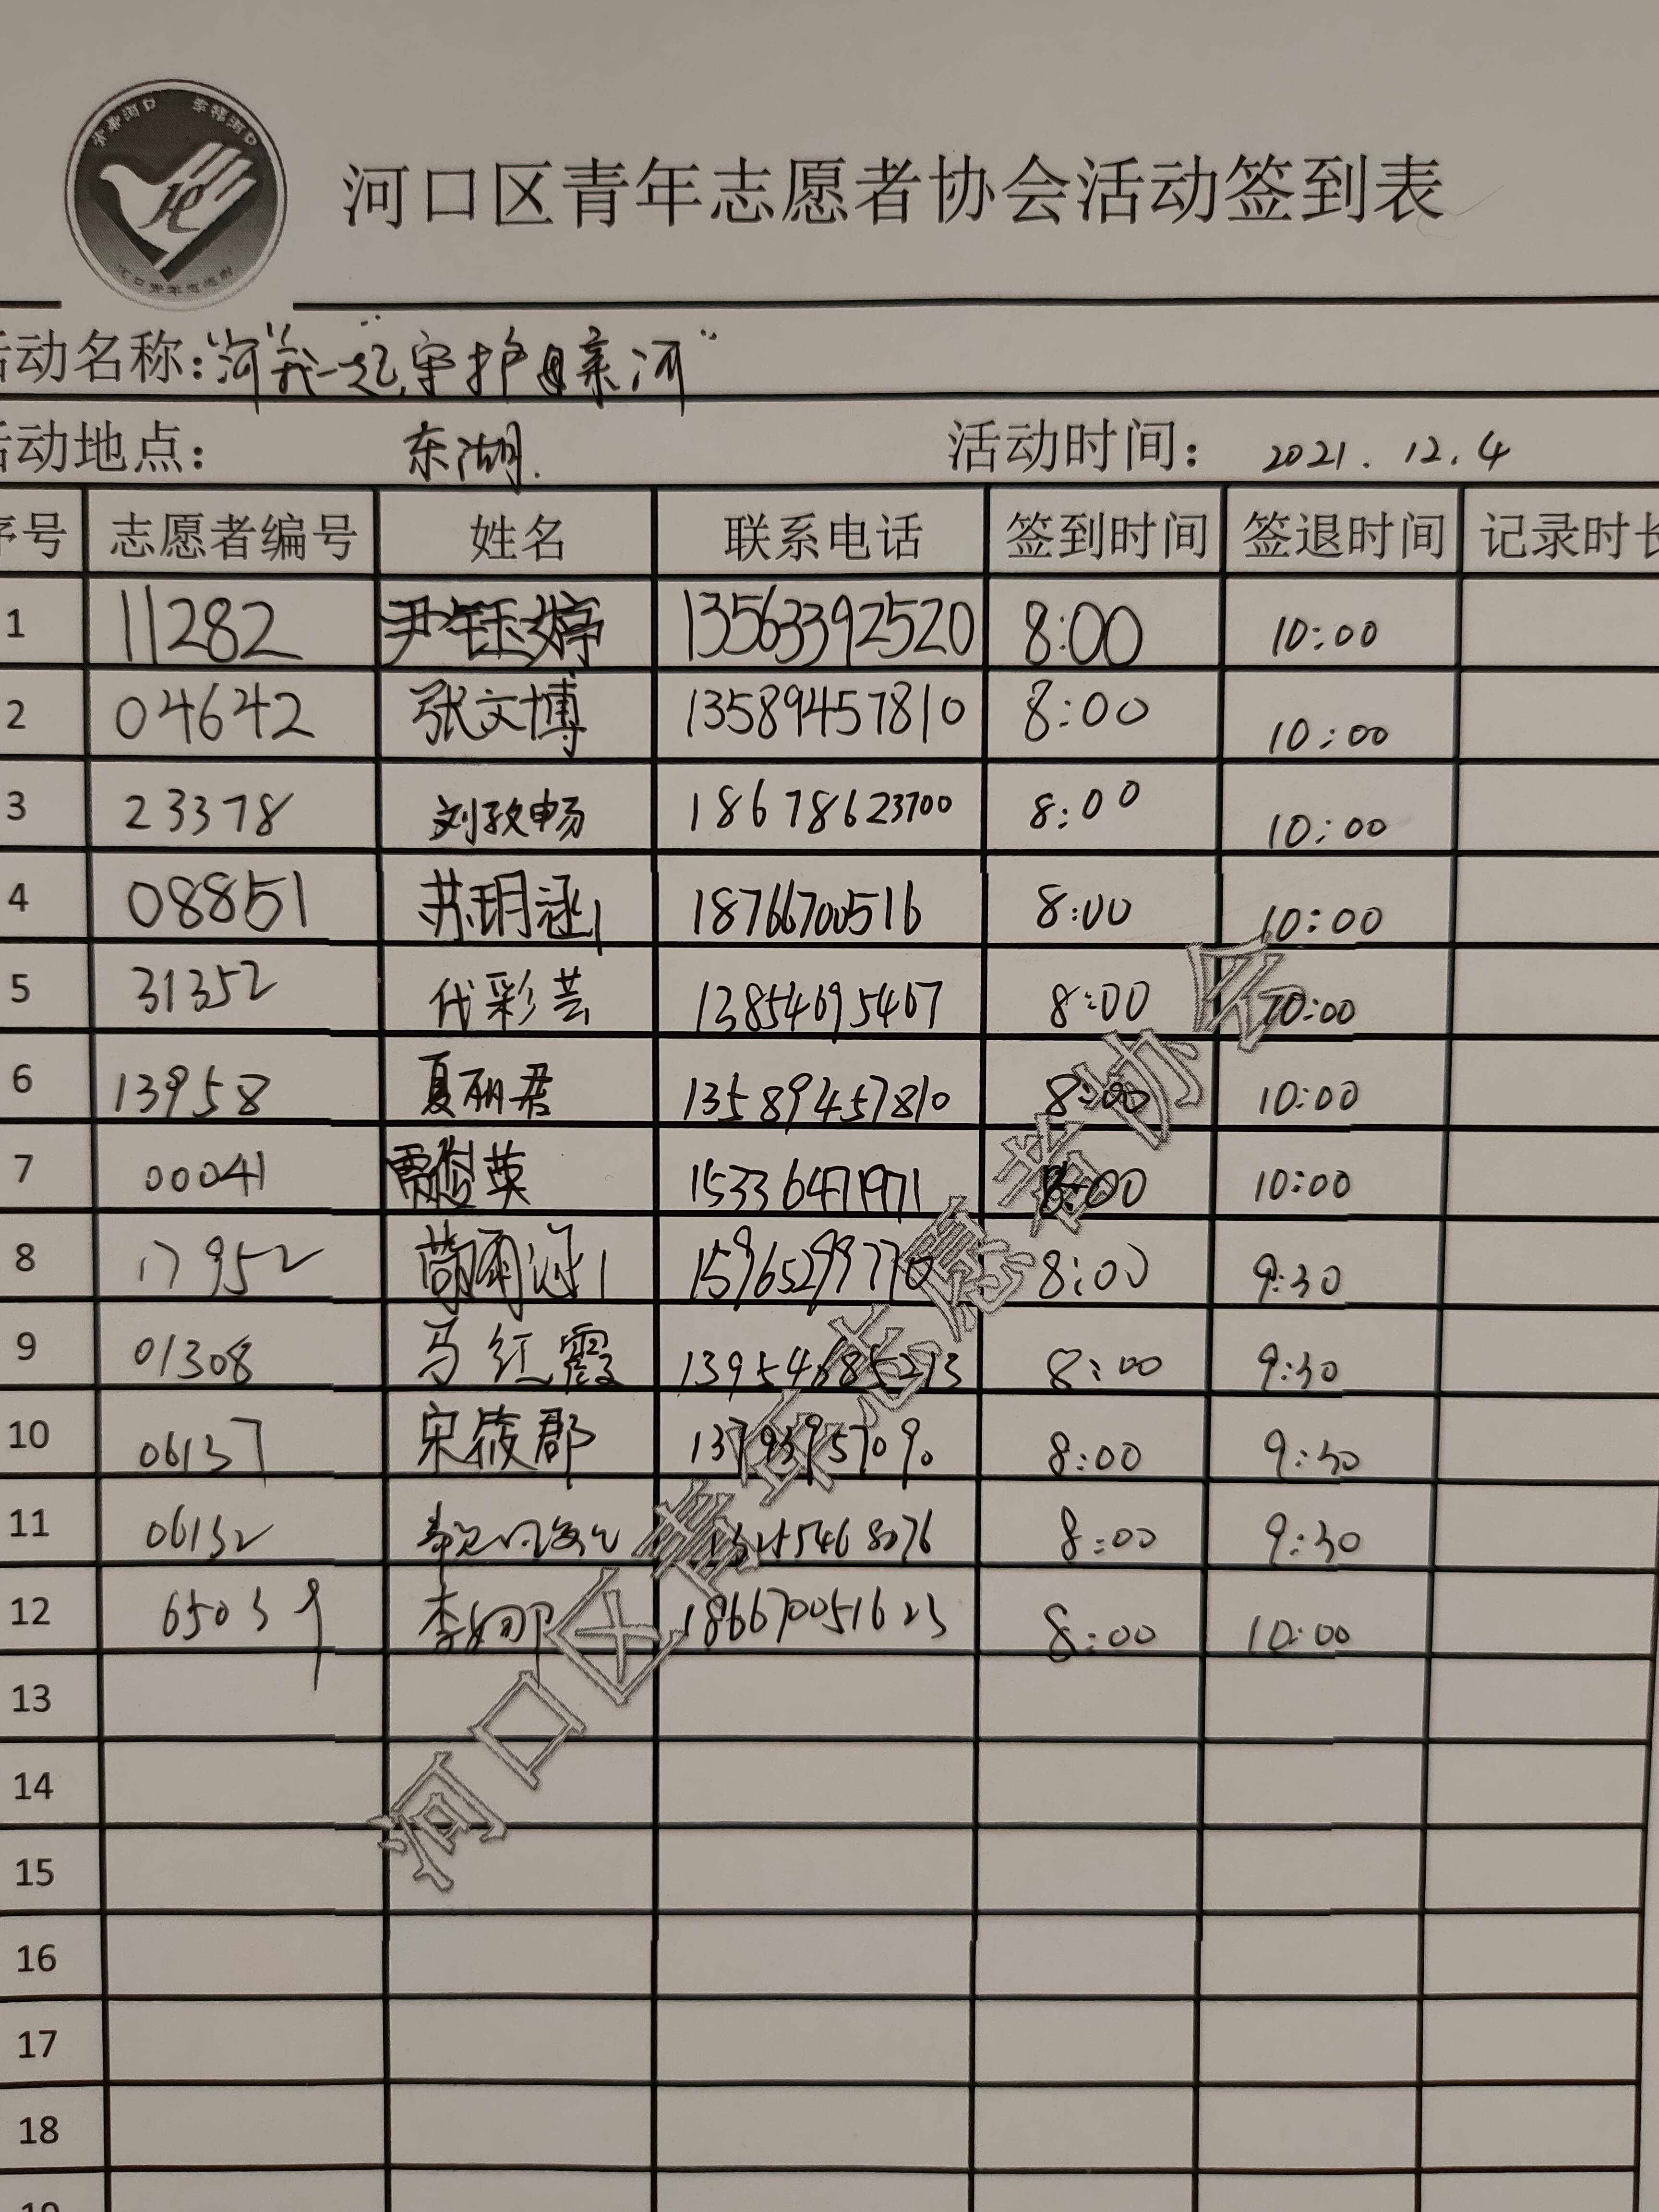 青春河口 幸福河口
河口青年志愿者
河口区青年志愿者协会活动签到表
活动名称：“河”我一起，守护母亲河”
活动地点： 东湖. 活动时间： 2021.12.4
序号 志愿者编号 姓名 联系电话 签到时间 签退时间 记录时长
1 11282 尹钰婷 13563392520 8:00 10:00
2 04642 张文博 13589457810 8:00 10:00
3 23378 刘政畅 18678623700 8:00 10:00
4 08851 苏玥涵 18766700516 8:00 10:00
5 31352 代彩芸 13854695467 8:00 10:00
6 13958 夏丽君 13589457810 8:00 10:00
7 00041 英 15336471971 8:00 10:00
8 17952 15965299770 8:00 9:30
9 01308 马红霞 13954685213 8:00 9:30
10 06137 宋筱郡 13793957090 8:00 9:30
11 06132 8:00 9:30
12 65039 李娜 186670051623 8:00 10:00
13
14
15
16
17
18
19
河口区青年志愿者协会